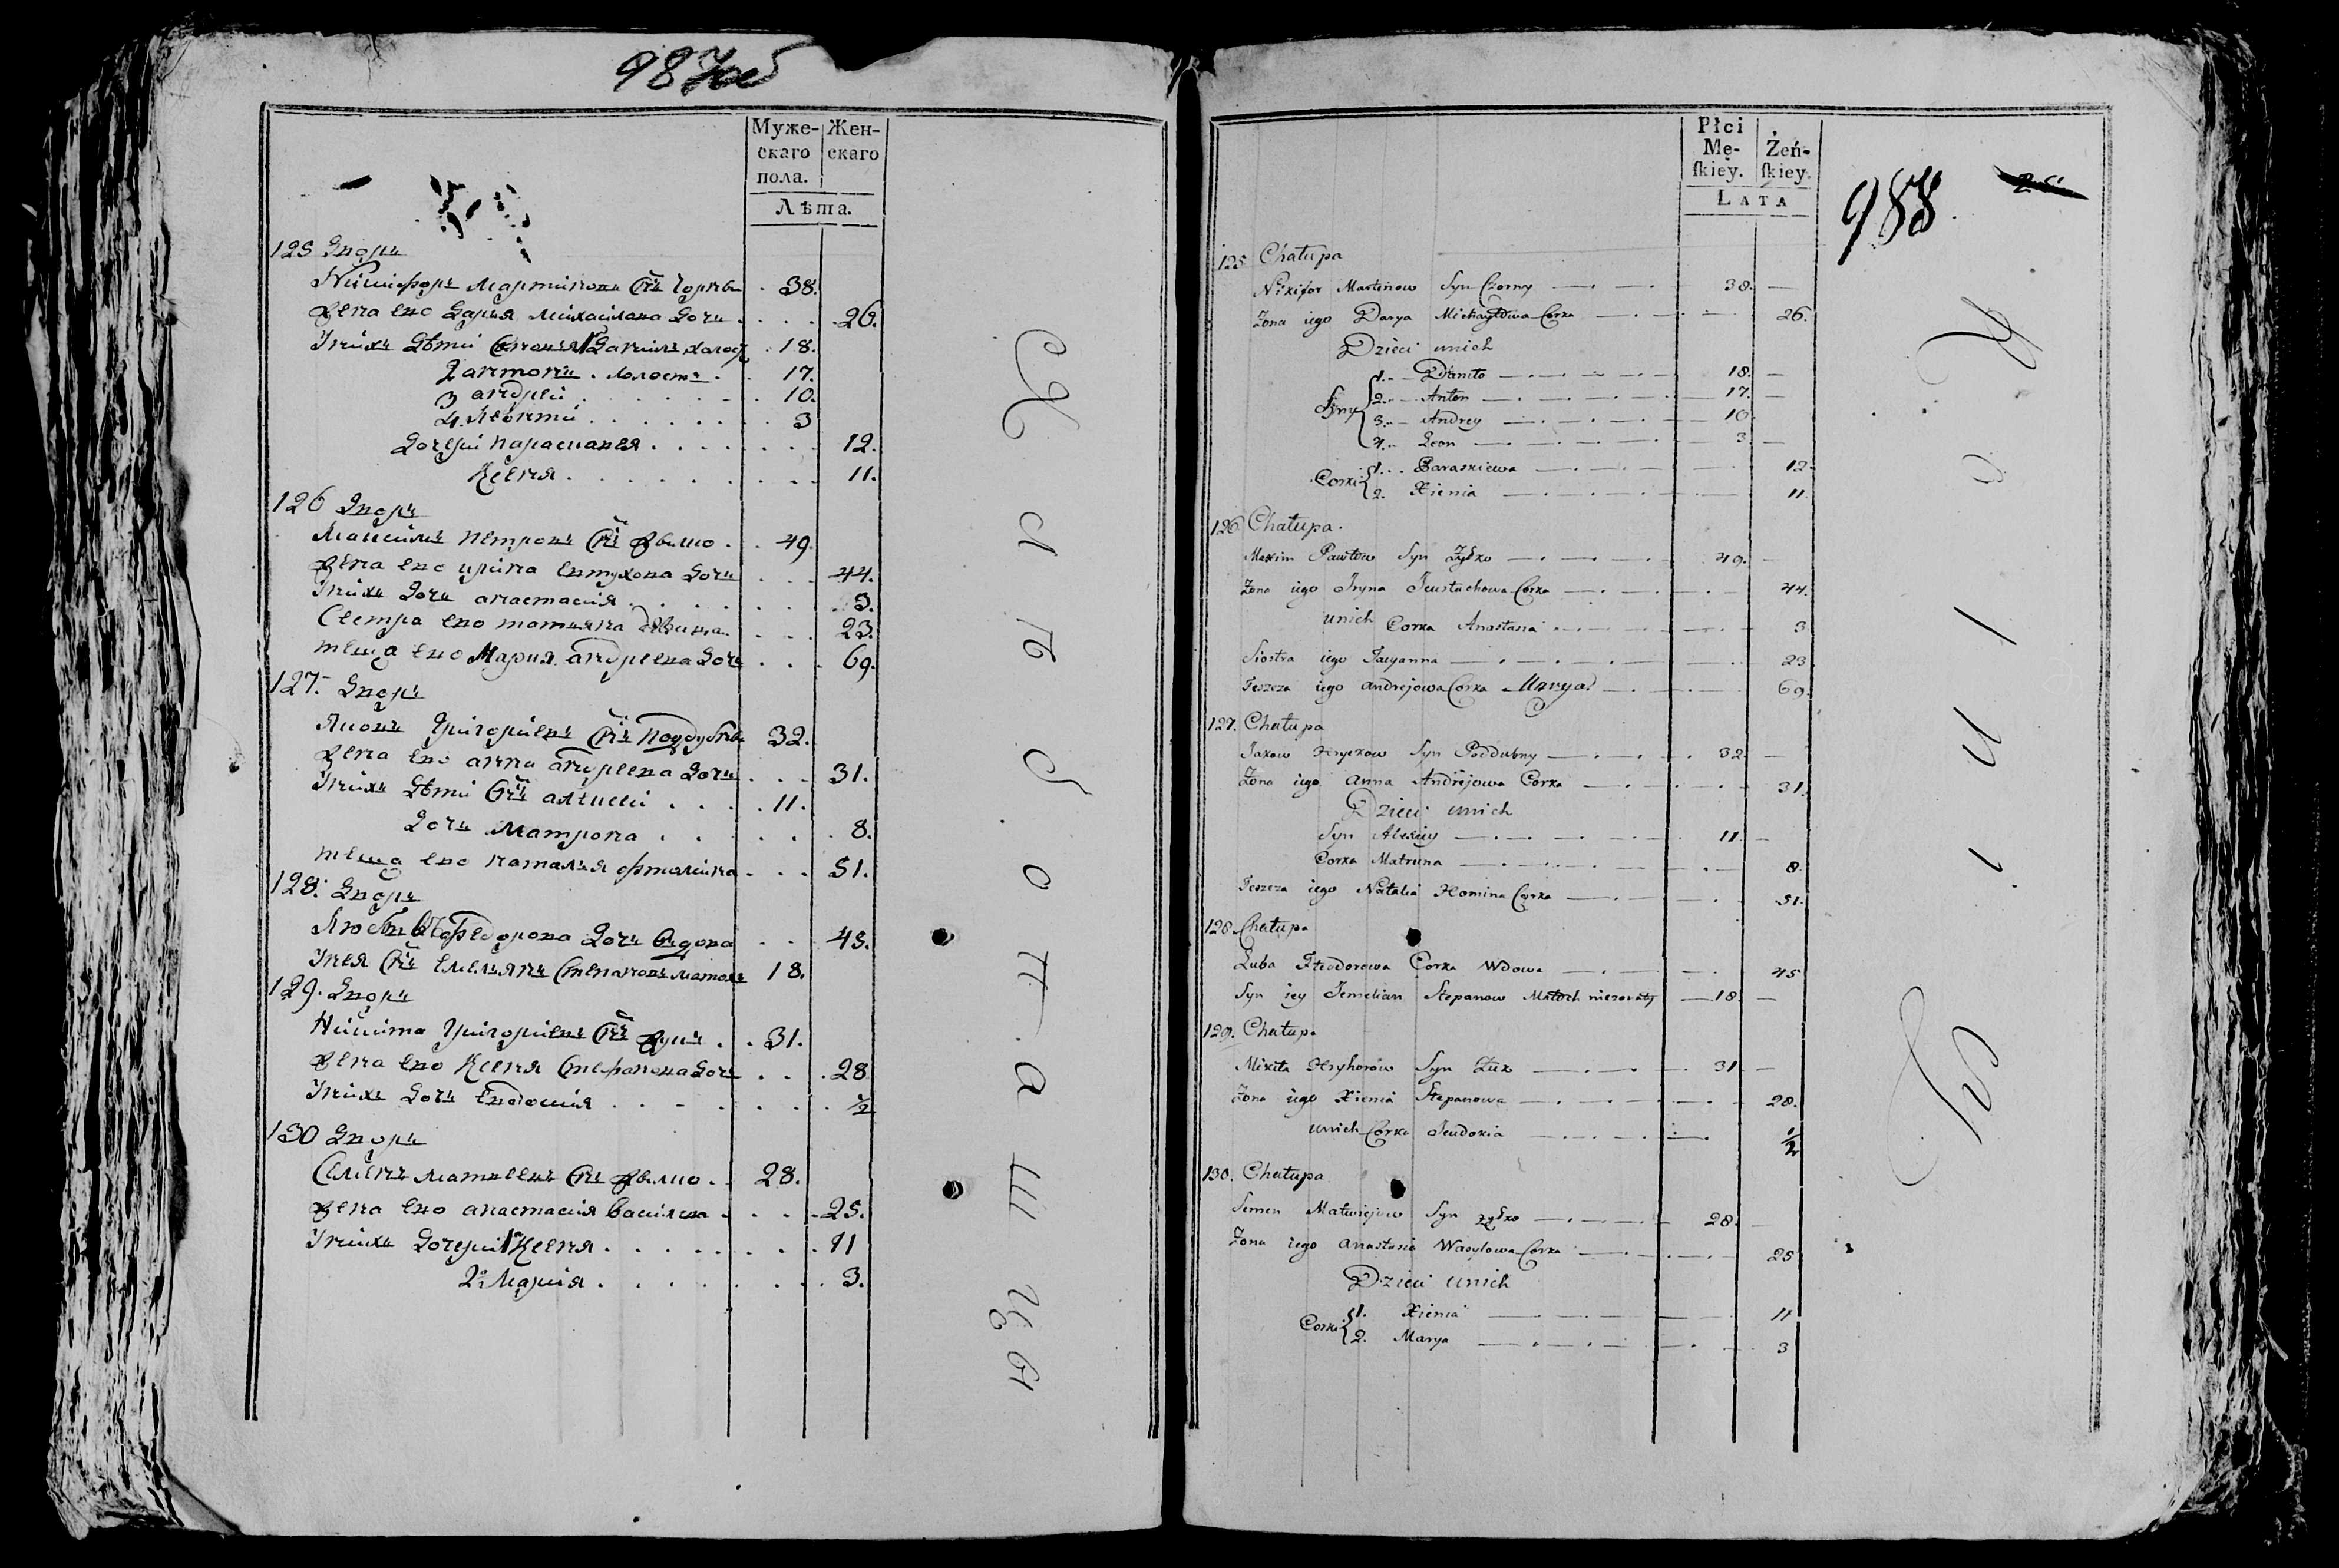 987 об
Муже-
скаго
пола.
Жен-
скаго
Лѣта.
125 Дворъ
Никифоръ Мартиновъ Снъ Чорнъ 38.
Жена Ево Дарья Михаилова Дочь 26.
У нихъ Дѣти Сыновья 1 Данило Холост 18.
2 Антонъ. Холостъ 17.
3 Андрей 10.
4. Леонтий 3
Дочери Парасковея 12.
Ксения 11.
126 Дворъ
Максимъ Петровъ Снъ 49.
Жена Ево Ирина Евтухова Дочь 44.
У нихъ Дочь Анастасия 3.
Сестра Ево Татьяна Девица 23.
Теща Ево Мария Андреева Дочь 69.
127. Дворъ
Яковъ Григорьевъ Снъ Поддубнъ 32.
Жена Ево Анна Андреева Дочь 31.
У нихъ Дѣти Снъ Алѣксей 11.
Дочь Матрона 8.
Теща Ево Наталья 51.
128. Дворъ
Любовь Федорова Дочь Вдова 45.
У нея Снъ Емельянъ Степановъ 18.
129. Дворъ
Никита Григорьевъ Снъ Жукъ 31.
Жена Ево Ксения Стефанова Дочь 28
У нихъ Дочь Евдокия ½
130 Дворъ
Семенъ Матвеевъ Снъ 28.
Жена Ево Анастасия Васильева 25.
У нихъ Дочери 1 Ксения 11
2 Мария 3.
Х
л
ѣ
б
о
п
а
ш
ц
ы
Płci
Mę-
ſkiey.
Żeń-
ſkiey.
LATA
988
25
125 Chałupa
Nikifor Martinow Syn Czorny 38.
Zona iego Darya Michayłowa Corka 26.
Dzieci unich
Syny 1. Daniło 18.
2. Anton 17.
3. Andrey 10
4. Leon 3
Corki 1. Paraskiewa 12.
2. Xienia 11
126 Chałupa.
Maxim Pawłow Syn Zyłko 49.
Zona iego Jryna Jeustachowa Corka 44.
unich Corka Anastasia 3
Siostra iego Tacyanna 23
Teszcza iego Andrejowa Corka Marya 69.
127. Chałupa
Jakow Hryckow Syn Poddubny 32.
Zona iego Anna Andrejowa Corka 31.
Dzieci unich
Syn Alexiey 11.
Corka Matruna 8.
Teszcza iego Natalia Homina Corka 51.
128 Chałupa
Luba Fteodorowa Corka Wdowa 45
Syn iey Jemelian Stepanow 18.
129. Chałupa
Mikita Hryhorow Syn Żuk 31
Zona iego Xienia Stepanowa 28.
unich Corka Jeudokia ½
130. Chałupa
Semen Matwiejow Syn Zyłko 28.
Zona iego Anastasia Wasylowa Corka 25
Dzieci unich
Corki 1. Xienia 11
2. Marya 3